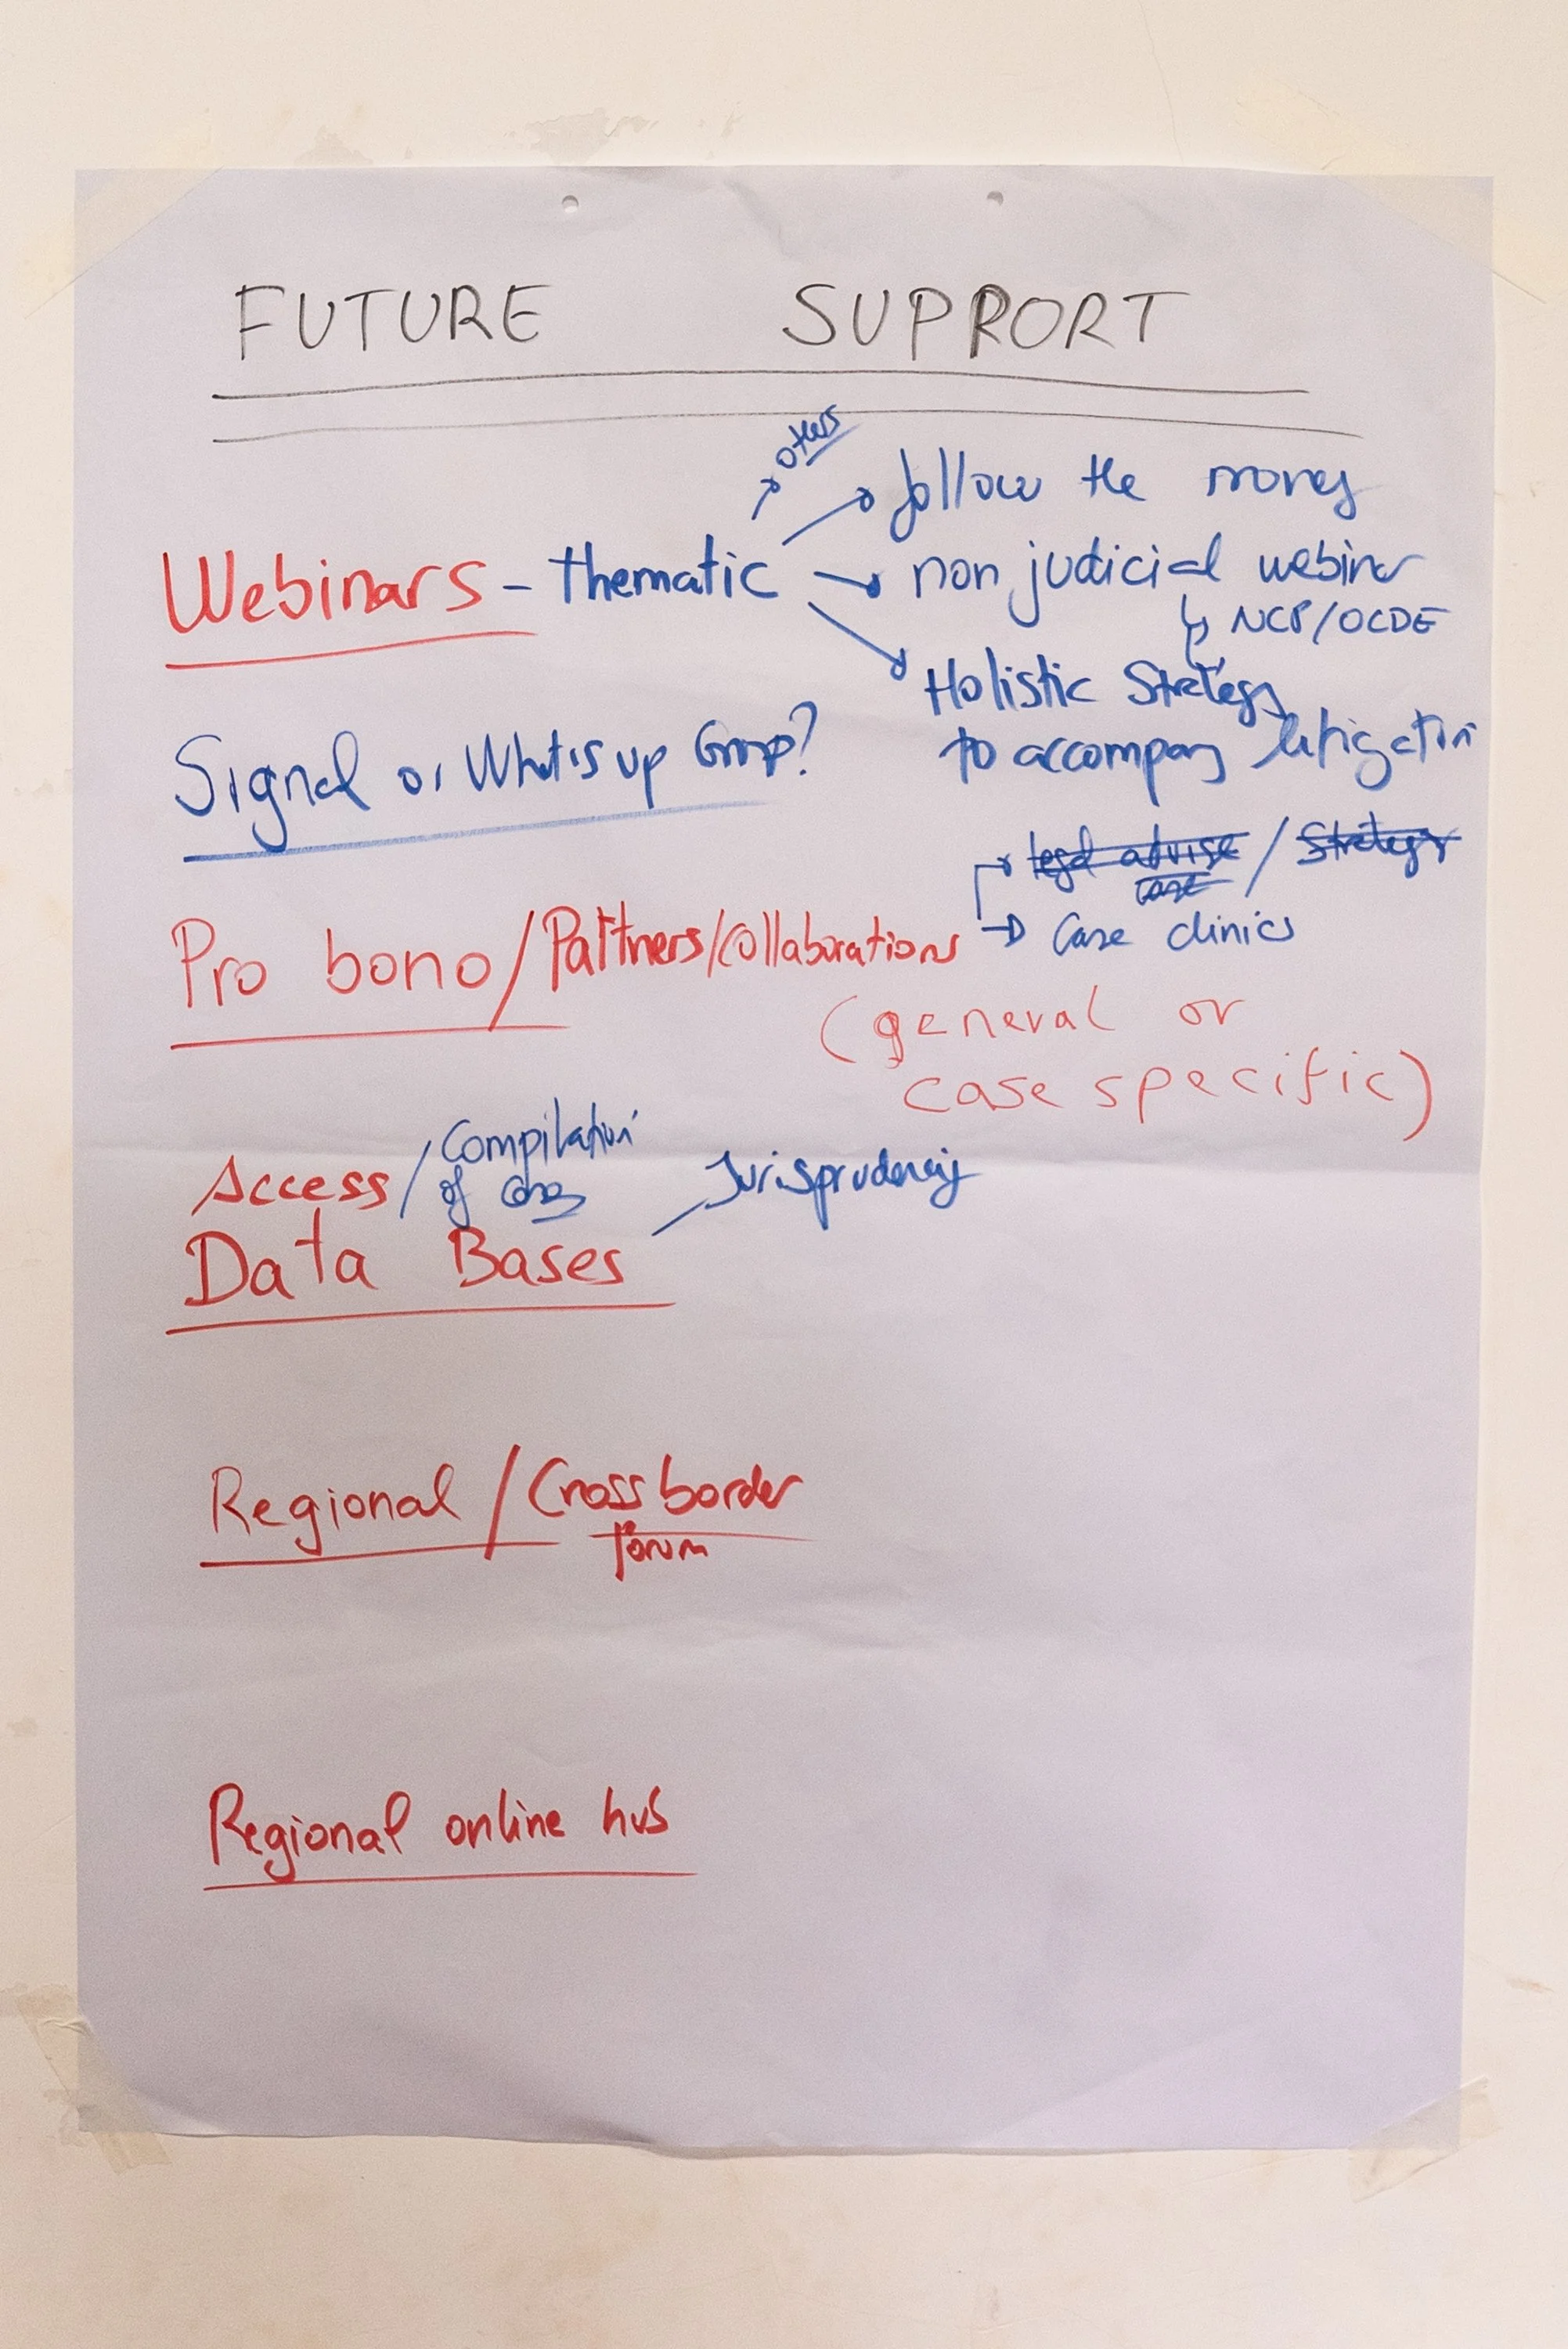 FUTURE SUPPORT
others
follow the money
Webinars - thematic
non judicial webinar
NCP/OCDE
Holistic Strategy
to accompany litigation
Signal or What's up Group?
legal advise / Strategy
case
Case clinics
Pro bono/Partners/collaborations
(general or
case specific)
Access / Compilation
of cases
Jurisprudency
Data Bases
Regional / Cross border
forum
Regional online hub